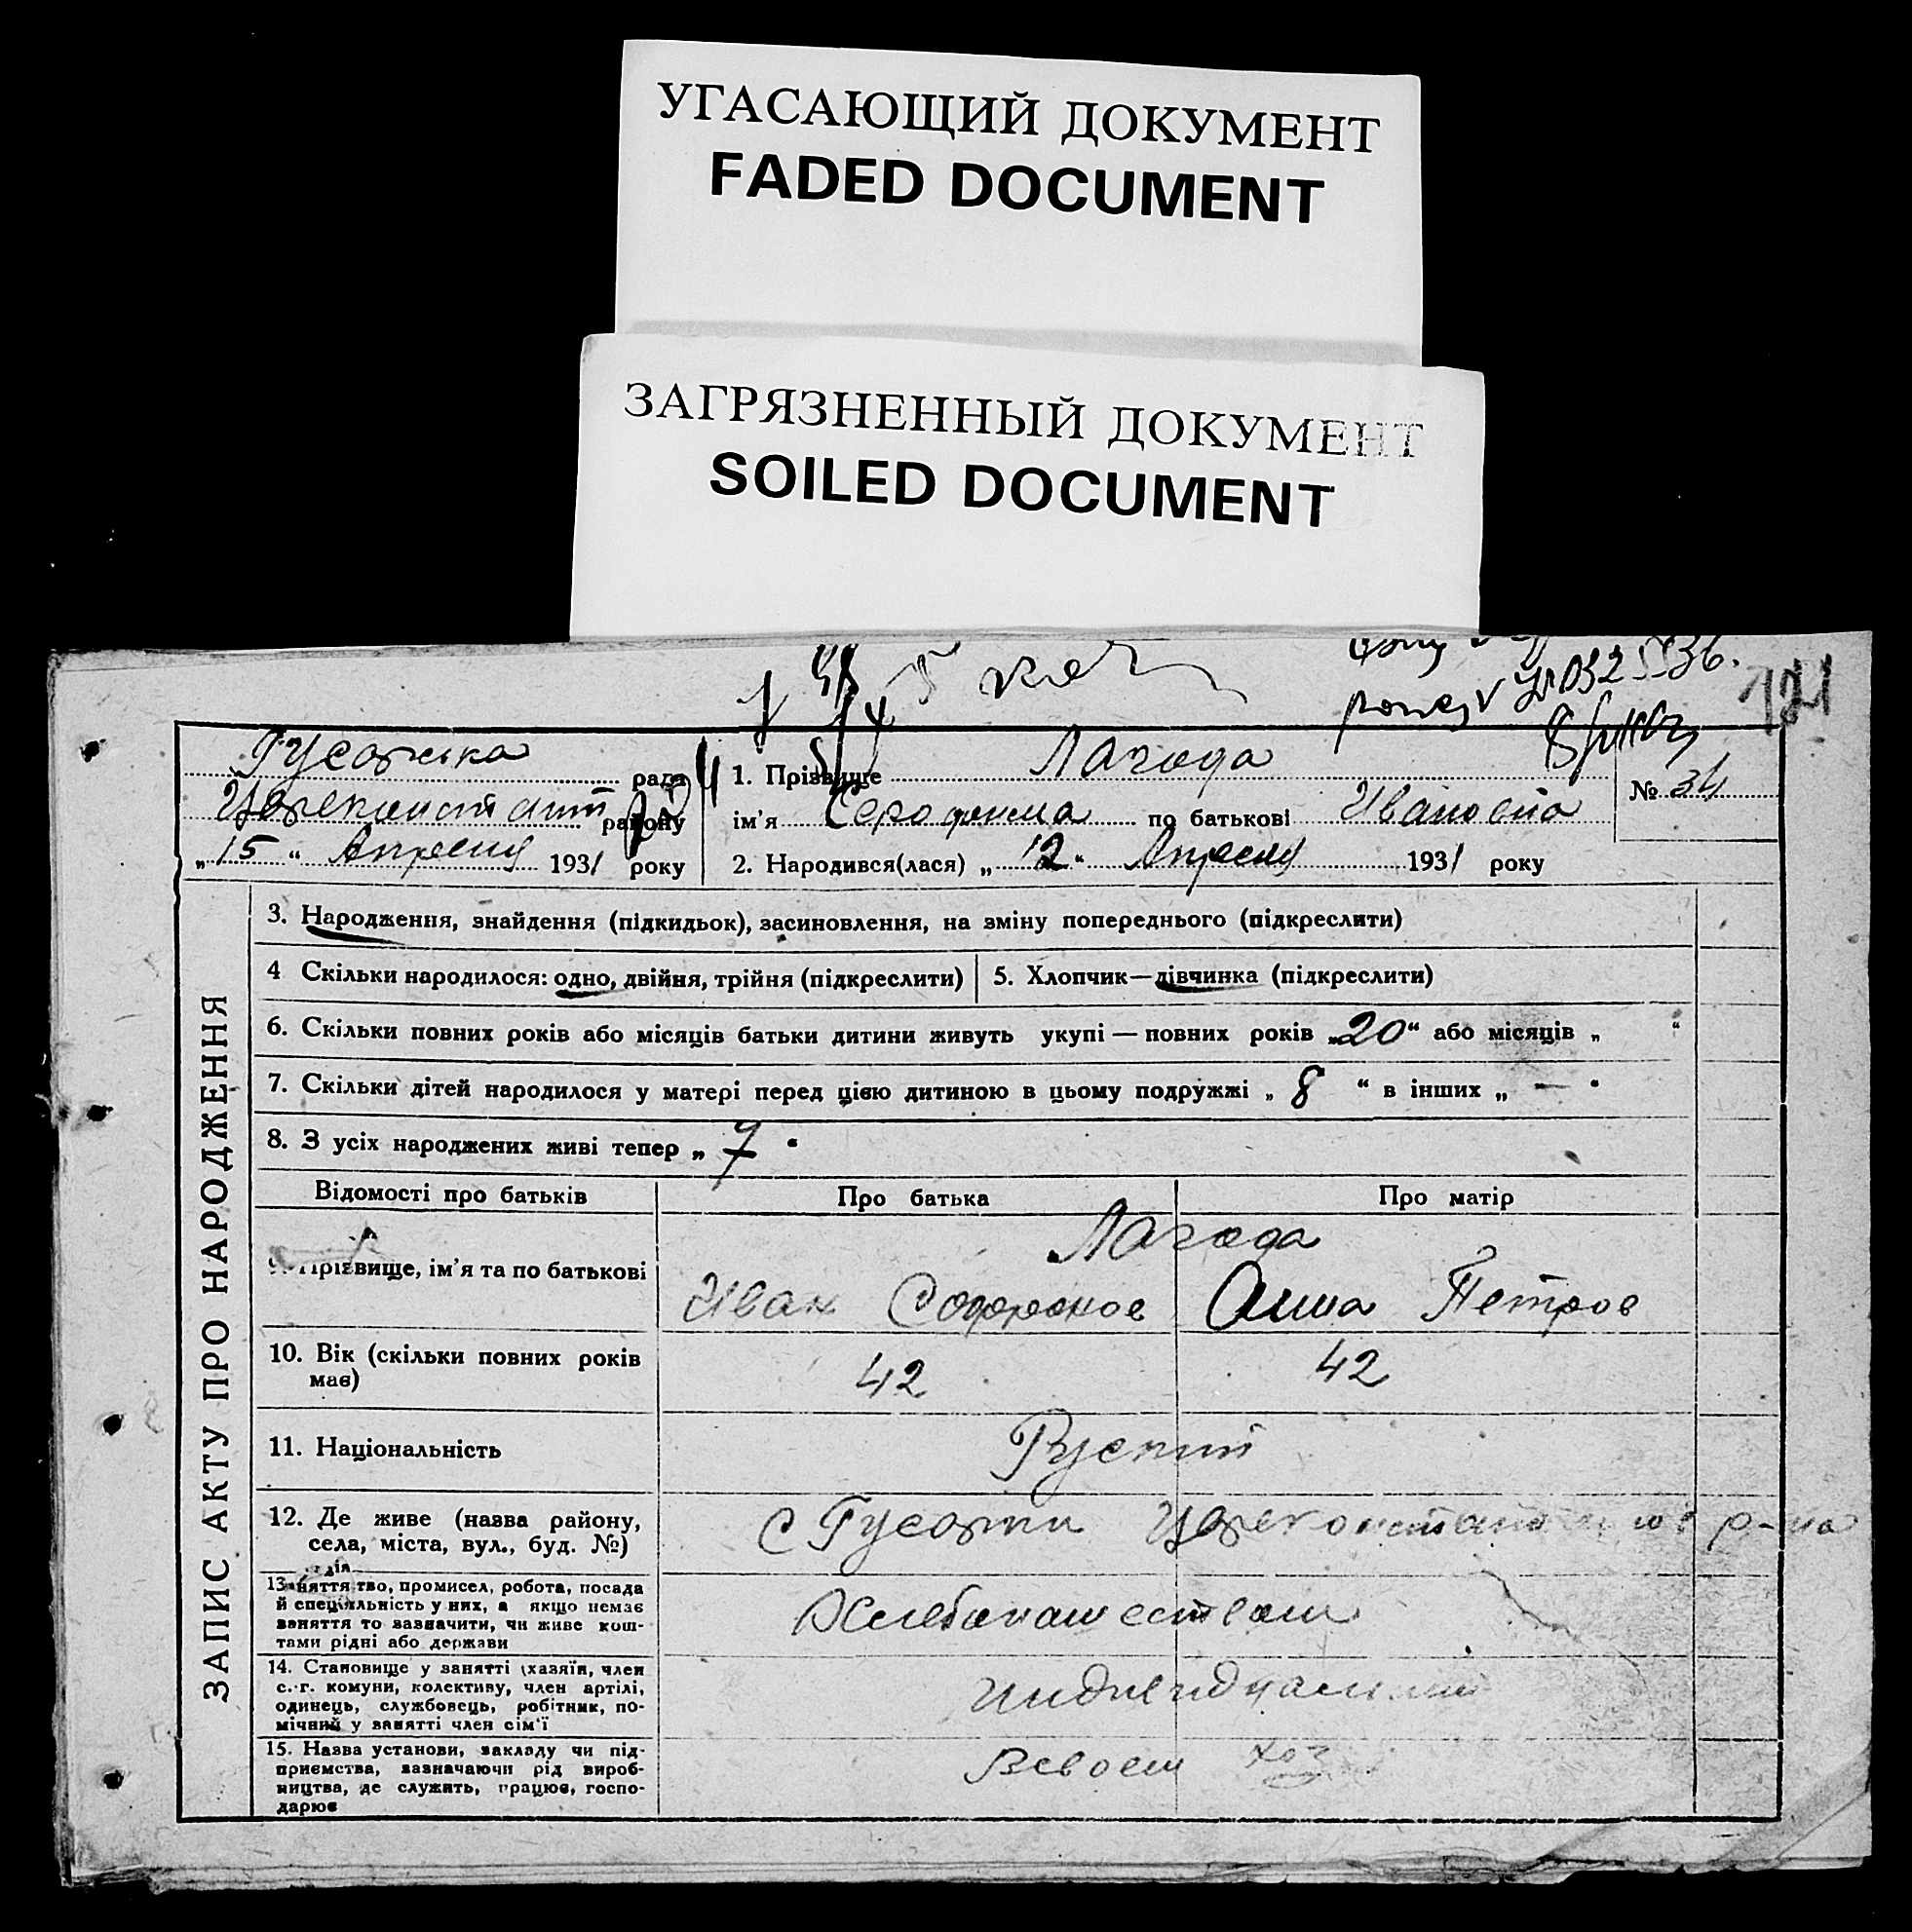 УГАСАЮЩИЙ ДОКУМЕНТ
FADED DOCUMENT
ЗАГРЯЗНЕННЫЙ ДОКУМЕНТ
SOILED DOCUMENT
121
рада
району
„ 15 “ Апреля 1931 року
1. Прізвище Лагода
ім'я по батькові Ивановна
2. Народився(лася) „ 12 “ Апреля 1931 року
№ 34
ЗАПИС АКТУ ПРО НАРОДЖЕННЯ
3. Народження, знайдення (підкидьок), засиновлення, на зміну попереднього (підкреслити)
4 Скільки народилося: одно, двійня, трійня (підкреслити)
5. Хлопчик—дівчинка (підкреслити)
6. Скільки повних років або місяців батьки дитини живуть укупі — повних років „20“ або місяців „ “
7. Скільки дітей народилося у матері перед цією дитиною в цьому подружжі „ 8 “ в інших „ — “
8. З усіх народжених живі тепер „ 7 “
Відомості про батьків
Про батька
Про матір
9. Прізвище, ім'я та по батькові
Лагода
Иван Софронов
Анна Петров
10. Вік (скільки повних років
має)
42
42
11. Національність
Руский
12. Де живе (назва району,
села, міста, вул., буд. №)
с р-на
13 няття тво, промисел, робота, посада
й спеціяльність у них, а якщо немає
заняття то зазначити, чи живе кош-
тами рідні або держави
Хлебопашеством
14. Становище у занятті (хазяїн, член
с.-г. комуни, колективу, член артілі,
одинець, службовець, робітник, по-
мічний у занятті член сім'ї
15. Назва установи, закладу чи під-
приємства, зазначаючи рід вироб-
ництва, де служить, працює, госпо-
дарює
Всвоем хоз